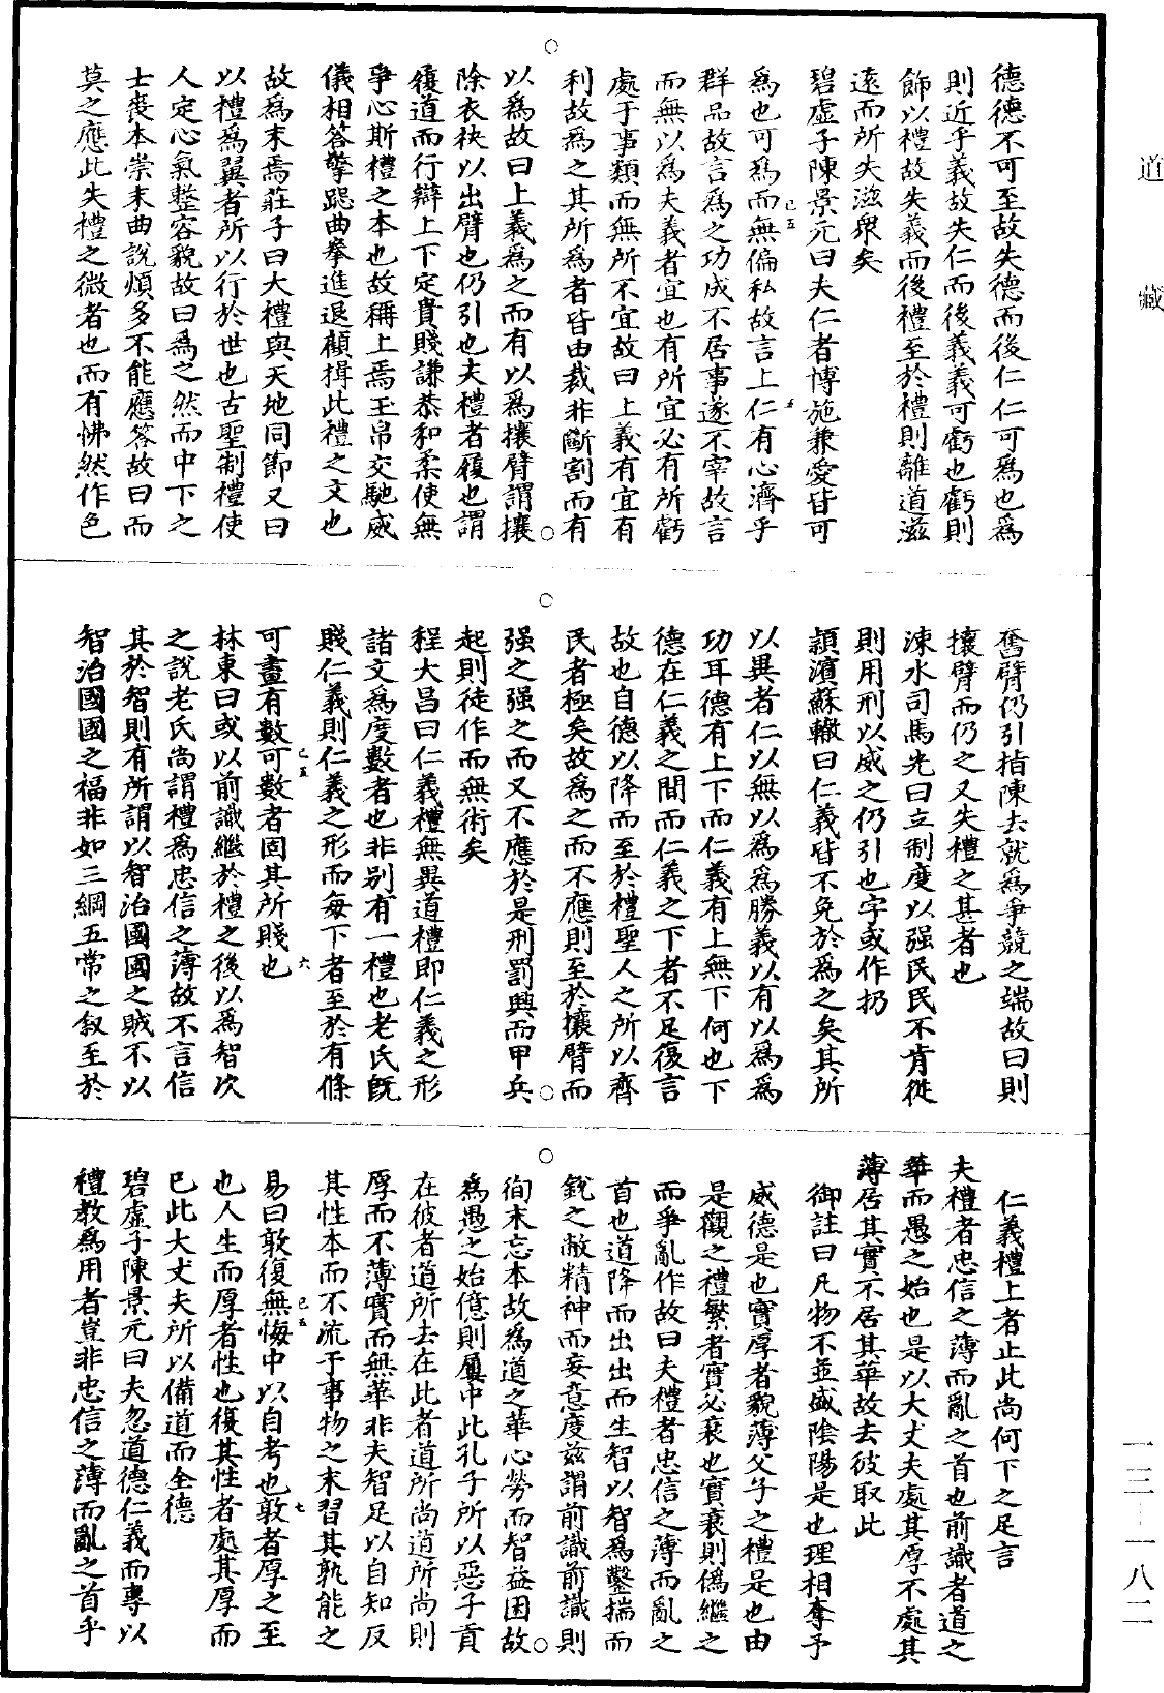 道藏
德德不可至故失德而後仁仁可爲也爲
則近乎義故失仁而後義義可虧也虧則
飾以禮故失義而後禮至於禮則離道滋
遠而所失滋衆矣
碧虛子陳景元曰夫仁者博施兼愛皆可
爲也可爲而無偏私故言上仁有心濟乎
群品故言爲之功成不居事遂不宰故言
而無以爲夫義者宜也有所宜必有所虧
處于事類而無所不宜故曰上義有宜有
利故爲之其所爲者皆由裁非斷割而有
以爲故曰上義爲之而有以爲攘臂謂攘
除衣袂以出臂也仍引也夫禮者履也謂
履道而行辯上下定貴賤謙恭和柔使無
爭心斯禮之本也故稱上焉玉帛交馳威
儀相答擎跽曲拳進退顧揖此禮之文也
故爲末焉莊子曰大禮與天地同節又曰
以禮爲翼者所以行於世也古聖制禮使
人定心氣整容貌故曰爲之然而中下之
士喪本崇末曲說煩多不能應答故曰而
莫之應此失禮之微者也而有怫然作色
奮臂仍引指陳去就爲爭競之端故曰則
攘臂而仍之又失禮之甚者也
涑水司馬光曰立制度以强民民不肯從
則用刑以威之仍引也字或作扔
潁濱蘇轍曰仁義皆不免於爲之矣其所
以異者仁以無以爲爲勝義以有以爲爲
功耳德有上下而仁義有上無下何也下
德在仁義之間而仁義之下者不足復言
故也自德以降而至於禮聖人之所以齊
民者極矣故爲之而不應則至於攘臂而
强之强之而又不應於是刑罰興而甲兵
起則徒作而無術矣
程大昌曰仁義禮無異道禮即仁義之形
諸文爲度數者也非別有一禮也老氏既
賤仁義則仁義之形而每下者至於有條
可畫有數可數者固其所賤也
林東曰或以前識繼於禮之後以爲智次
之說老氏尚謂禮爲忠信之薄故不言信
其於智則有所謂以智治國國之賊不以
智治國國之福非如三綱五常之叙至於
仁義禮上者止此尚何下之足言
夫禮者忠信之薄而亂之首也前識者道之
華而愚之始也是以大丈夫處其厚不處其
薄居其實不居其華故去彼取此
御註曰凡物不並盛陰陽是也理相奪予
威德是也實厚者貌薄父子之禮是也由
是觀之禮繁者實必衰也實衰則僞繼之
而爭亂作故曰夫禮者忠信之薄而亂之
首也道降而出出而生智以智爲鑿揣而
銳之敝精神而妄意度兹謂前識前識則
徇末忘本故爲道之華心勞而智益困故
爲愚之始億則屢中此孔子所以惡子貢
在彼者道所去在此者道所尚道所尚則
厚而不薄實而無華非夫智足以自知反
其性本而不流于事物之末習其孰能之
易曰敦復無悔中以自考也敦者厚之至
也人生而厚者性也復其性者處其厚而
已此大丈夫所以備道而全德
碧虛子陳景元曰夫忽道德仁義而專以
禮教爲用者豈非忠信之薄而亂之首乎
一三—一八二